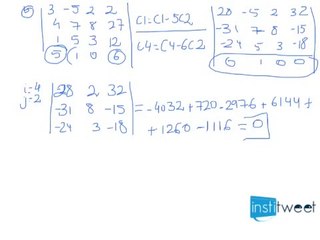 3 -5 2 2 | C1=C1-5C2 | 28 -5 2 32
4 7 8 27 | C4=C4-6C2 | -31 7 8 -15
1 5 3 12 | -24 5 3 -18
5 1 0 6 | 0 1 0 0
i=4
j=2
28 2 32
-31 8 -15 = -4032+720-2976+6144+
-24 3 -18 +1260-1116=0
institweet